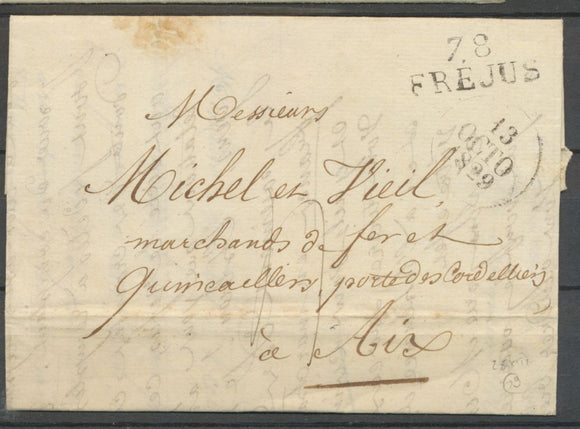 78
FRÉJUS
13
OCTO
829
Messieurs
Michel et Vieil,
marchands de fer et
Quincailliers, porte des Cordelliers
à Aix